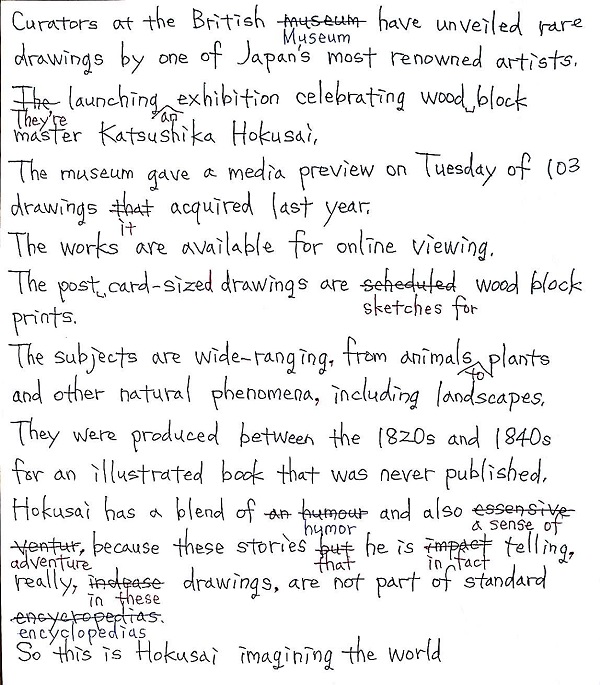 Curators at the British museum have unveiled rare
Museum
drawings by one of Japan's most renowned artists.
The launching exhibition celebrating wood block
They're an
master Katsushika Hokusai.
The museum gave a media preview on Tuesday of 103
drawings that acquired last year.
it
The works are available for online viewing.
The post card-sized drawings are scheduled wood block
sketches for
prints.
The subjects are wide-ranging, from animals plants
to
and other natural phenomena, including landscapes.
They were produced between the 1820s and 1840s
for an illustrated book that was never published.
Hokusai has a blend of an humour and also essensive
humor a sense of
ventur, because these stories but he is impact telling,
adventure that in fact
really, indease drawings, are not part of standard
in these
encycropedias.
encyclopedias
So this is Hokusai imagining the world